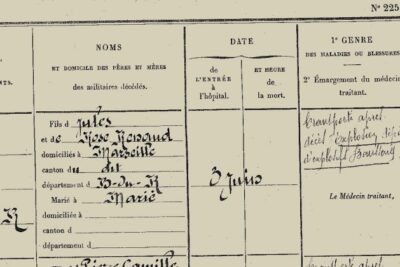 N° 225
NOMS
ET DOMICILE DES PÈRES ET MÈRES
des militaires décédés.
DATE
de
L'ENTRÉE
à
l'hôpital.
ET HEURE
de
la mort.
1° GENRE
DES MALADIES OU BLESSURES.
2° Émargement du médecin
traitant.
NTS.
Fils d Jules
et de Rose Renaud
domiciliés à Marseille
canton du dit
département B-du-R
Marié à Marié
domiciliée à
canton d
département d
3 Juin
R
transporté après
décès explosion
d'explosif
Le Médecin traitant,
Pierre Camille
transporté après